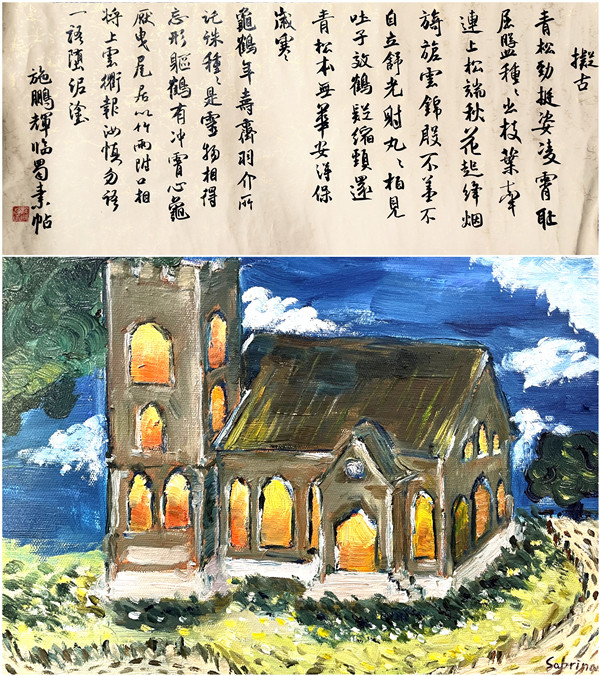 擬古
青松勁挺姿凌霄恥
屈盤種々出枝葉牽
連上松端秋花起絳烟
旖旎雲錦殷不羞不
自立舒光射丸々柏見
吐子效鶴疑縮頸還
青松本無華安得保
歲寒
龜鶴年壽齊羽介所
託殊種々是靈物相得
忘形軀鶴有冲霄心龜
厭曳尾居以竹兩附口相
將上雲衢報汝慎勿語
一語墮泥塗
施鵬輝臨蜀素帖
Sabrina